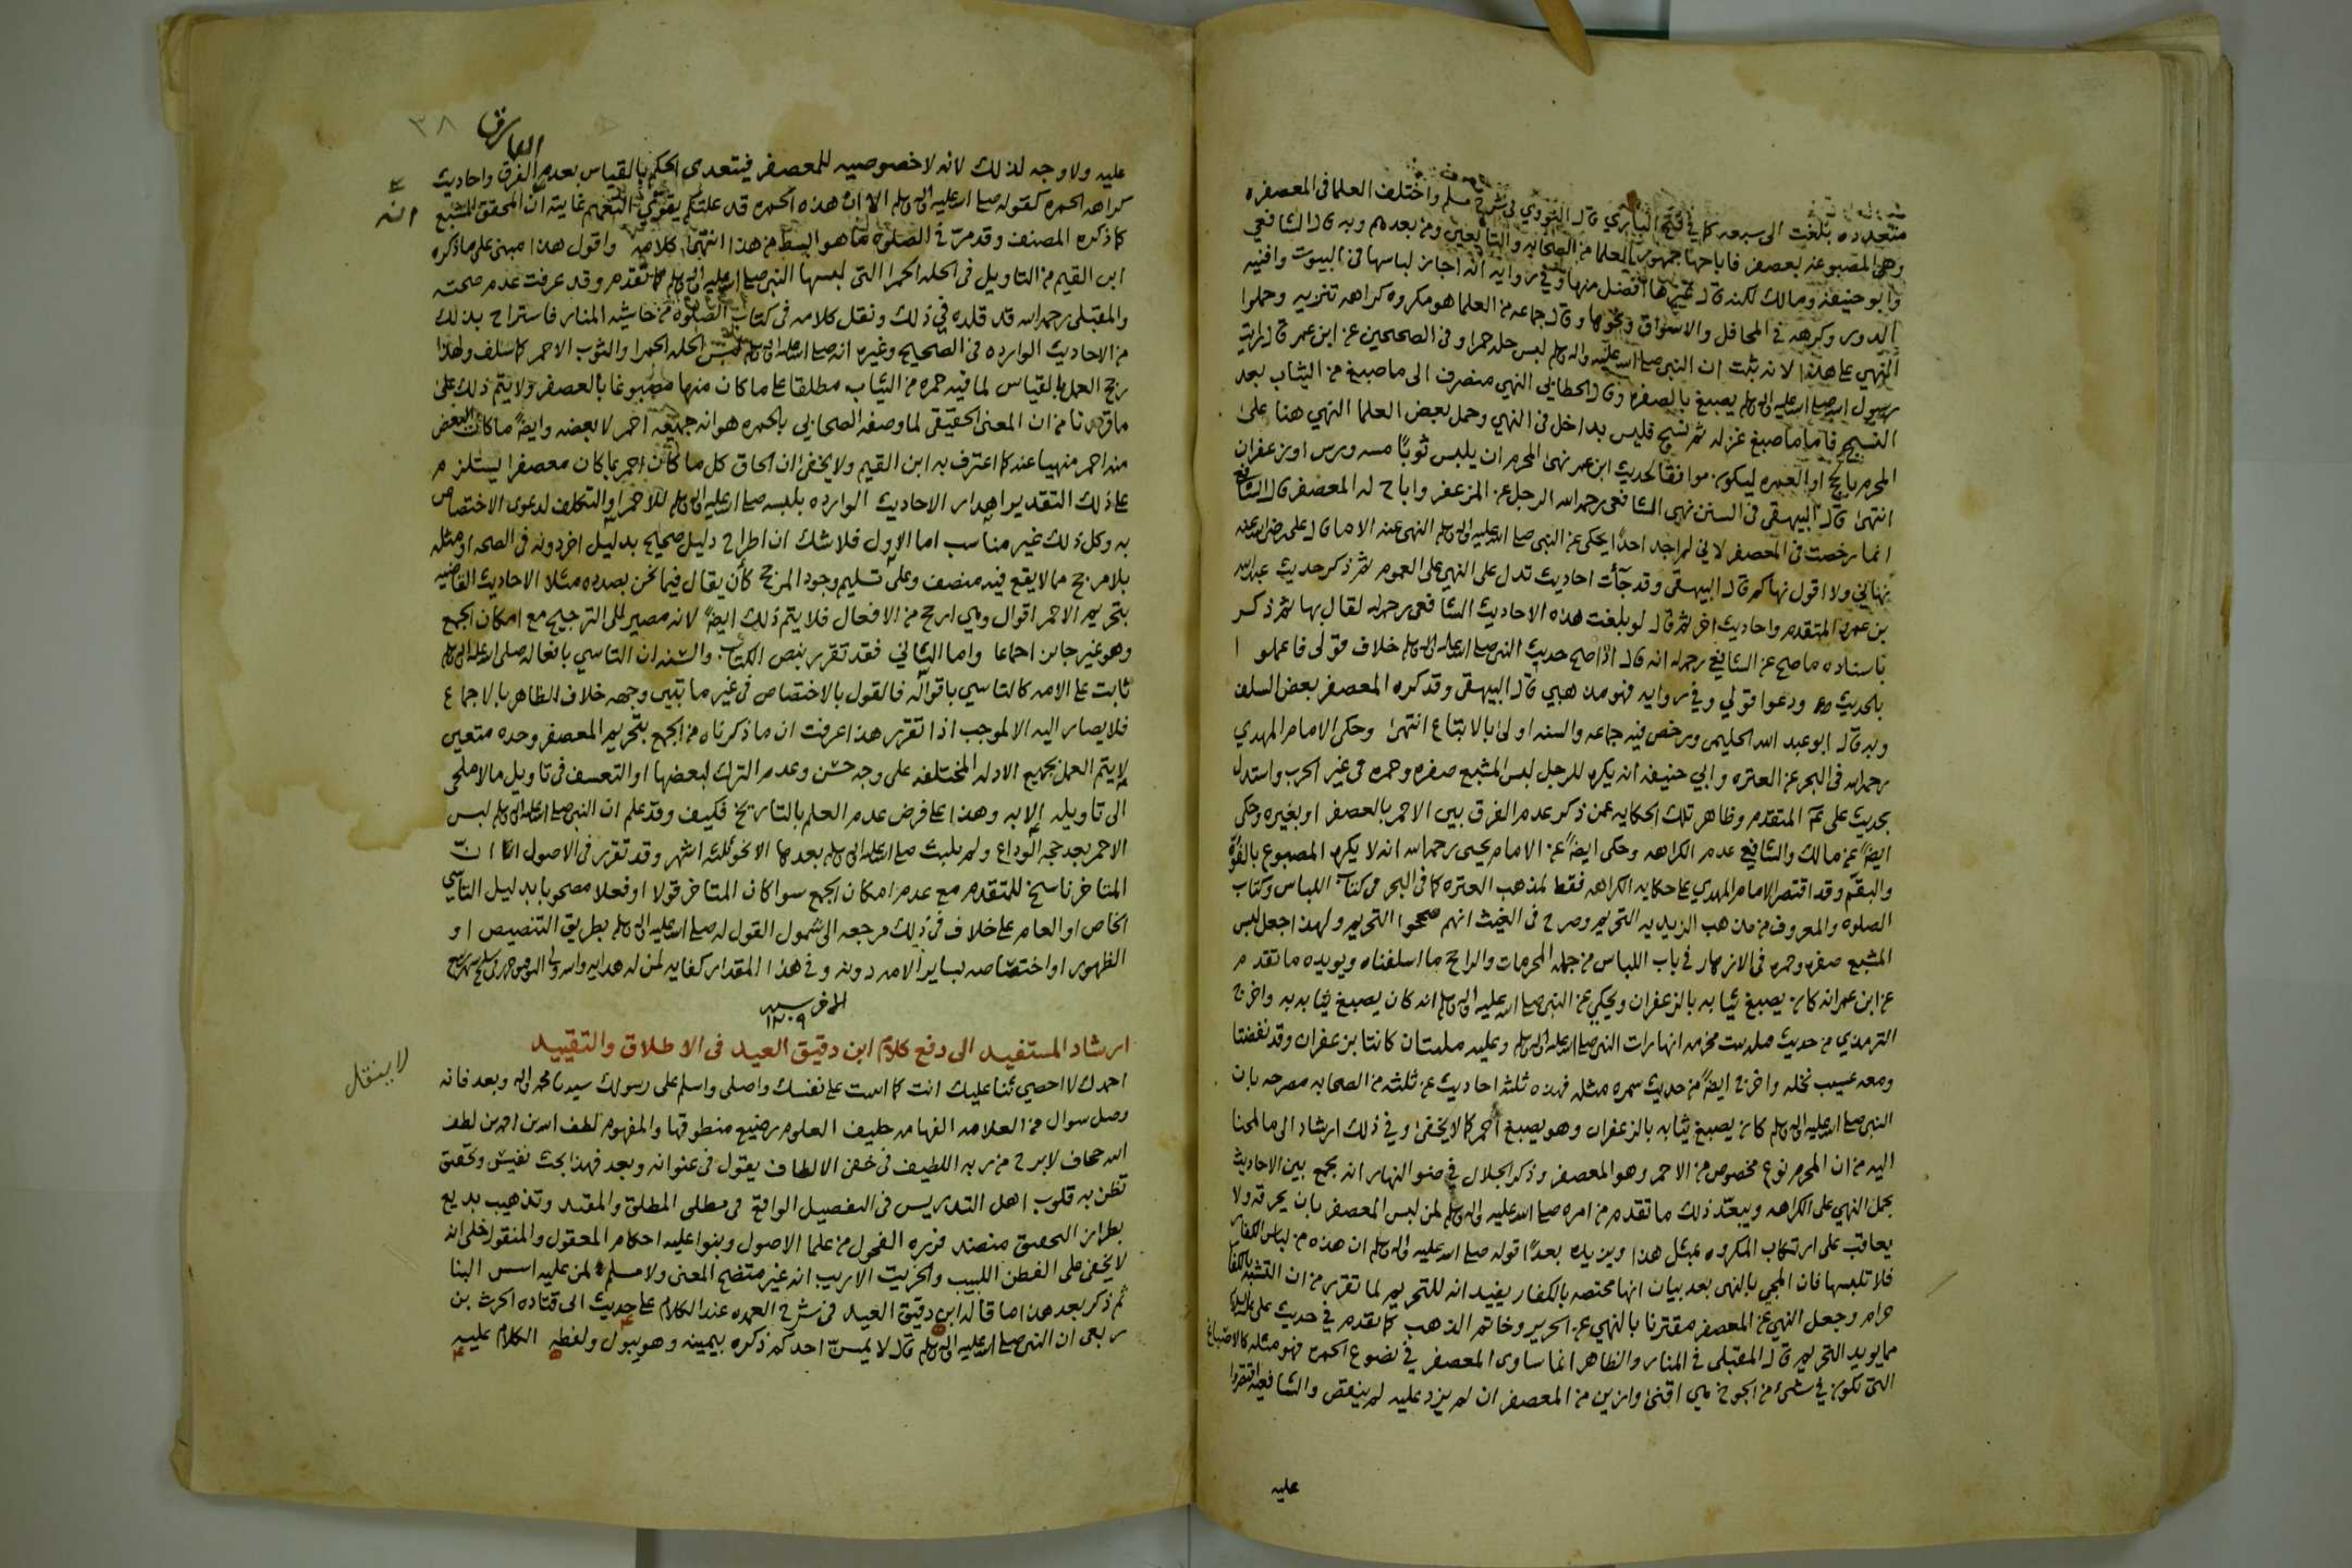 متعدده بلغت الى سبعه كما في فتح الباري قال النووي في شرح مسلم واختلف العلما في المعصفره
وهي المصبوغه بعصفر فاباحها جمهور العلما من الصحابه والتابعين ومن بعدهم وبه قال الشافعي
وابو حنيفه ومالك لكنه قال غيرها افضل منها وفي روايه انه اجاز لباسها في البيوت وافنيه
الدور وكرهه في المحافل والاسواق ونحوها وقال جماعه من العلما هو مكروه كراهه تنزيه وحملوا
النهي على هذا لانه ثبت ان النبي صلى الله عليه واله وسلم لبس حله حمرا وفي الصحيحين عن ابن عمر قال رايت
رسول الله صلى الله عليه واله وسلم يصبغ بالصفره وقال الخطابي النهي منصرف الى ما صبغ من الثياب بعد
النسج فاما ما صبغ غزله ثم نسج فليس بداخل في النهي وحمل بعض العلما النهي هنا على
المحرم بالحج او العمره ليكون موافقا لحديث ابن عمر نهى المحرم ان يلبس ثوبا مسه ورس او زعفران
انتهى قال البيهقي في السنن نهى الشافعي رحمه الله الرجل عن المزعفر واباح له المعصفر قال الشافعي
انما رخصت في المعصفر لاني لم اجد احدا يحكي عن النبي صلى الله عليه واله وسلم النهي عنه الا ما قال علي رضي الله عنه
نهاني ولا اقول نهاكم قال البيهقي وقد جآءت احاديث تدل على النهي على العموم ثم ذكر حديث عبد الله
بن عمرو المتقدم واحاديث اخر ثم قال لو بلغت هذه الاحاديث الشافعي رحمه الله لقال بها ثم ذكر
باسناده ما صح عن الشافعي رحمه الله انه قال اذا صح حديث النبي صلى الله عليه واله وسلم خلاف قولي فاعملوا
بالحديث ودعوا قولي وفي روايه فهو مذهبي قال البيهقي وقد كره المعصفر بعض السلف
وبه قال ابو عبد الله الحليمي ورخص فيه جماعه والسنه اولى بالاتباع انتهى وحكى الامام المهدي
رحمه الله في البحر عن العتره وابي حنيفه انه يكره للرجل لبس المشبع صفره وحمره في غير الحرب واستدل
بحديث علي عم المتقدم وظاهر تلك الحكايه عمن ذكر عدم الفرق بين الاحمر بالعصفر او بغيره وحكى
ايضا عن مالك والشافعي عدم الكراهه وحكى ايضا عن الامام يحيى رحمه الله انه لا يكره المصبوغ بالفوه
والبقم وقد اقتصر الامام المهدي على حكايه الكراهه فقط لمذهب العتره كما في البحر في كتاب اللباس وكتاب
الصلوه والمعروف من مذهب الزيديه التحريم وصرح في الغيث انهم صححوا التحريم ولهذا جعل لبس
المشبع صفره وحمره في الازهار في باب اللباس من جمله المحرمات والراجح ما اسلفناه ويويده ما تقدم
عن ابن عمر انه كان يصبغ ثيابه بالزعفران ويحكي عن النبي صلى الله عليه واله وسلم انه كان يصبغ ثيابه به واخرج
الترمذي من حديث قيله بنت مخرمه انها رات النبي صلى الله عليه واله وسلم وعليه مليتان كانتا بزعفران وقد نفضتا
ومعه عسيب نخله واخرج ايضا من حديث سمره مثله فهذه ثلثه احاديث عن ثلثه من الصحابه مصرحه بان
النبي صلى الله عليه واله وسلم كان يصبغ ثيابه بالزعفران وهو يصبغ احمر كما لا يخفى وفي ذلك ارشاد الى ما المحنا
اليه من ان المحرم نوع مخصوص من الاحمر وهو المعصفر وذكر الجلال في ضو النهار انه يجمع بين الاحاديث
بحمل النهي على الكراهه ويبعد ذلك ما تقدم من امره صلى الله عليه واله وسلم لمن لبس المعصفر بان يحرقه ولا
يعاقب على ارتكاب المكروه بمثل هذا ويزيده بعدا قوله صلى الله عليه واله وسلم ان هذه من لباس الكفار
فلا تلبسها فان المجي بالنهي بعد بيان انها مختصه بالكفار يفيد انه للتحريم لما تقرر من ان التشبه بالكفار
حرام وجعل النهي عن المعصفر مقترنا بالنهي عن الحرير وخاتم الذهب كما تقدم في حديث علي عليه السلام
مما يويد التحريم قال المقبلي في المنار والظاهر انما ساوى المعصفر في نصوع الحمره فهو مثله كالاصباغ
التي تكون في شيء من الجوخ هي اقنى وازين من المعصفر ان لم يزد عليه لم ينقص والشافعيه اقتصروا
عليه
٣٨
عليه ولا وجه لذلك لانه لا خصوصيه للمعصفر فيتعدى الحكم بالقياس بعدم الفرق واحاديث
كراهه الحمره كقوله صلى الله عليه واله وسلم الا ان هذه الحمره قد علتكم يقوي التعميم غايته ان المحقق المشبع
كما ذكره المصنف وقد مر في الصلوه ما هو ابسط من هذا انتهى كلامه واقول هذا مبني على ما ذكره
ابن القيم من التاويل في الحله الحمرا التي لبسها النبي صلى الله عليه واله وسلم كما تقدم وقد عرفت عدم صحته
والمقبلي رحمه الله قد قلده في ذلك ونقل كلامه في كتاب الصلوه من حاشيه المنار فاستراح بذلك
من الاحاديث الوارده في الصحيح وغيره انه صلى الله عليه واله وسلم لبس الحله الحمرا والثوب الاحمر كما سلف ولهذا
رجح العمل بالقياس لما فيه حمره من الثياب مطلقا على ما كان منها مصبوغا بالعصفر ولا يتم ذلك على
ما قررنا من ان المعنى الحقيقي لما وصفه الصحابي بالحمره هو انه جميعه احمر لا بعضه وايضا ما كان البعض
منه احمر منهيا عنه كما اعترف به ابن القيم ولا يخفى ان الحاق كل ما كان احمر بما كان معصفرا يستلزم
على ذلك التقدير اهدار الاحاديث الوارده بلبسه صلى الله عليه واله وسلم للاحمر او التكلف لدعوى الاختصاص
به وكل ذلك غير مناسب اما الاول فلا شك ان اطراح دليل صحيح بدليل اخر دونه في الصحه او مثله
بلا مرجح مما لا يقع فيه منصف وعلى تسليم وجود المرجح كأن يقال فيما نحن بصدده مثلا الاحاديث القاضيه
بتحريم الاحمر اقوال وهي ارجح من الافعال فلا يتم ذلك ايضا لانه مصير الى الترجيح مع امكان الجمع
وهو غير جائز اجماعا واما الثاني فقد تقرر بنص الكتاب والسنه ان التاسي بافعاله صلى الله عليه واله وسلم
ثابت على الامه كالتاسي باقواله فالقول بالاختصاص في غير ما تبين وجهه خلاف الظاهر بالاجماع
فلا يصار اليه الا لموجب اذا تقرر هذا عرفت ان ما ذكرناه من الجمع بتحريم المعصفر وحده متعين
لا يتم العمل بجميع الادله المختلفه على وجه حسن وعدم الترك لبعضها او التعسف في تاويل ما لا ملجي
الى تاويله الا به وهذا على فرض عدم العلم بالتاريخ فكيف وقد علم ان النبي صلى الله عليه واله وسلم لبس
الاحمر بعد حجه الوداع ولم يلبث صلى الله عليه واله وسلم بعدها الا نحو ثلثه اشهر وقد تقرر في الاصول ان
المتاخر ناسخ للمتقدم مع عدم امكان الجمع سوا كان المتاخر قولا او فعلا مصحوبا بدليل التاسي
الخاص او العام على خلاف في ذلك مرجعه الى شمول القول له صلى الله عليه واله وسلم بطريق التنصيص او
الظهور او اختصاصه بساير الامه دونه وفي هذا المقدار كفايه لمن له هدايه والله ولي التوفيق
الاخر سنه
١٢٠٩
ارشاد المستفيد الى دفع كلام ابن دقيق العيد في الاطلاق والتقييد
لا ينقل
احمدك لا احصي ثنا عليك انت كما اثنيت على نفسك واصلي واسلم على رسولك سيدنا محمد واله وبعد فانه
وصل سوال من العلامه الفهامه حليف العلوم رضيع منطوقها والمفهوم لطف الله بن احمد بن لطف
الله جحاف لا برح من ربه اللطيف في خفي الالطاف يقول في عنوانه وبعد فهذا بحث نفيس وتحقيق
تطن به قلوب اهل التدريس في التفصيل الواقع في مطلى المطلق والمقيد وتذهيب بديع
بطراز التحقيق منضد قرره الفحول من علما الاصول وبنوا عليه احكام المعقول والمنقول خلى انه
لا يخفى على الفطن اللبيب والخريت الاريب انه غير متضح المعنى ولا مسلم لمن عليه اسس البنا
ثم ذكر بعد هذا ما قاله ابن دقيق العيد في شرح العمده عند الكلام على حديث ابي قتاده الحرث بن
ربعي ان النبي صلى الله عليه واله وسلم قال لا يمسن احدكم ذكره بيمينه وهو يبول ولفظه الكلام عليه